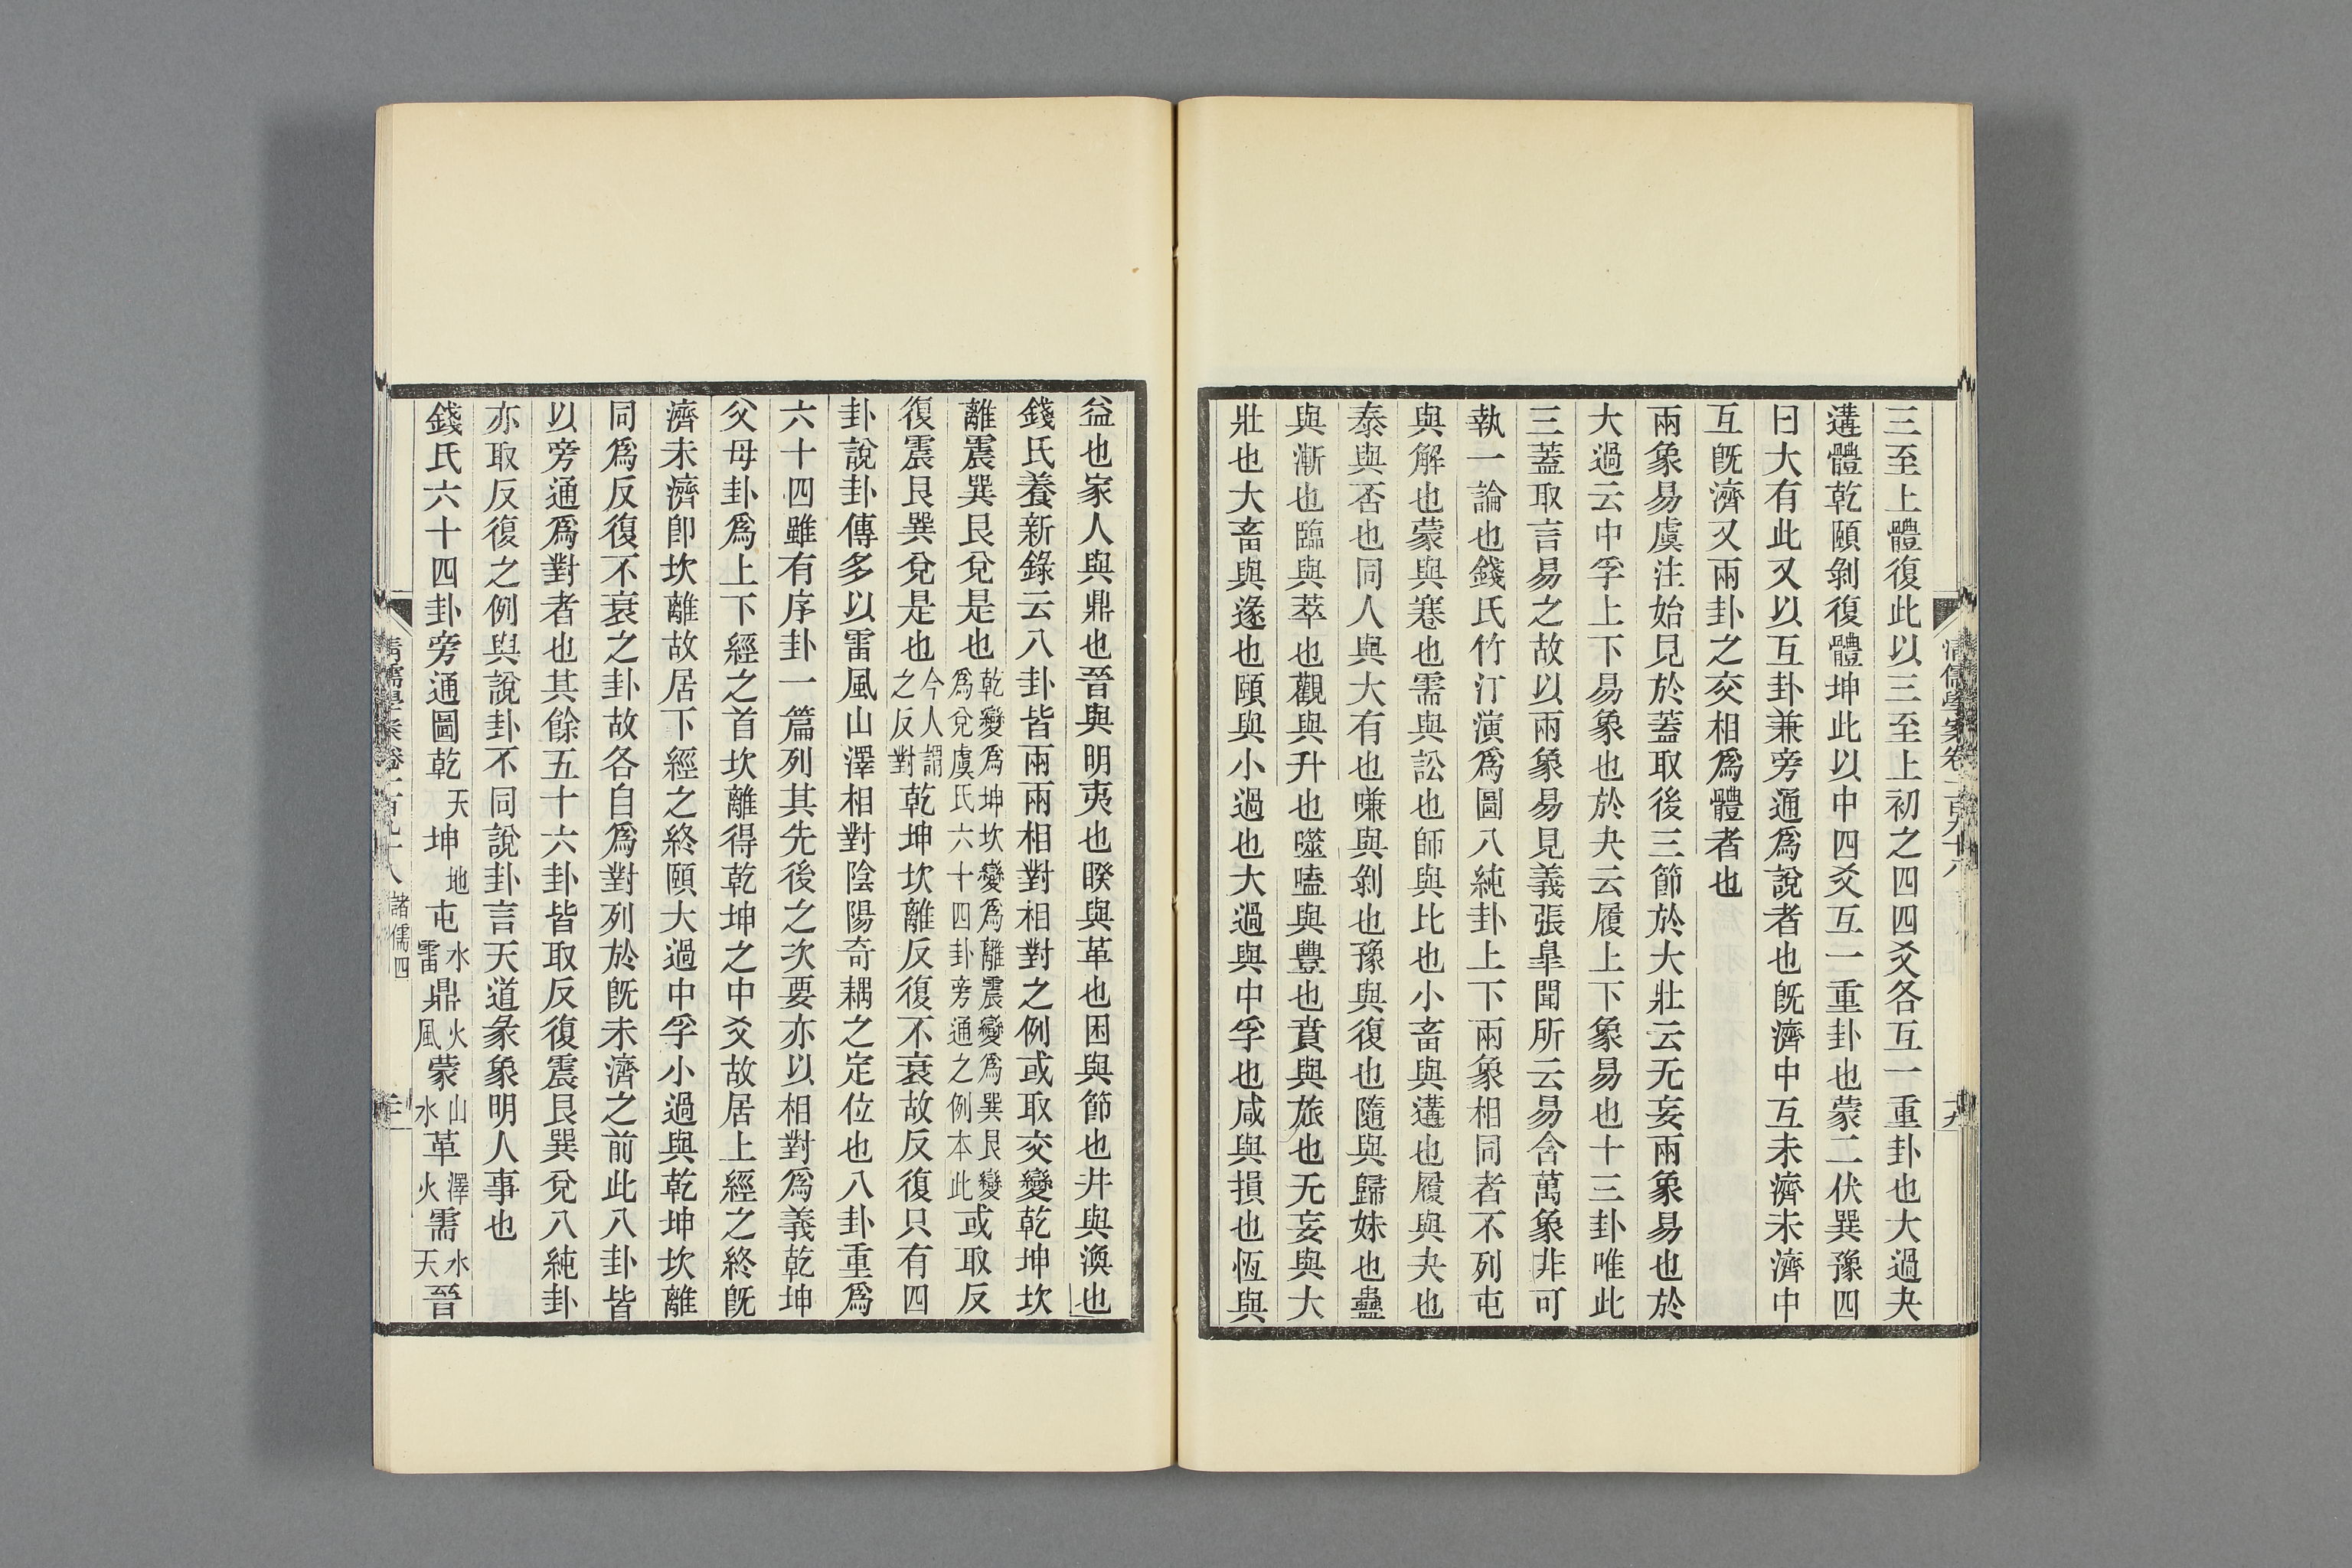 三至上體復此以三至上初之四四爻各互一重卦也大過夬
遘體乾頤剝復體坤此以中四爻互一重卦也蒙二伏巽豫四
曰大有此又以互卦兼旁通爲說者也旣濟中互未濟未濟中
互旣濟又兩卦之交相爲體者也
兩象易虞注始見於蓋取後三節於大壯云无妄兩象易也於
大過云中孚上下易象也於夬云履上下象易也十三卦唯此
三蓋取言易之故以兩象易見義張臯聞所云易含萬象非可
執一論也錢氏竹汀演爲圖八純卦上下兩象相同者不列屯
與解也蒙與蹇也需與訟也師與比也小畜與遘也履與夬也
泰與否也同人與大有也嗛與剝也豫與復也隨與歸妹也蠱
與漸也臨與萃也觀與升也噬嗑與豐也賁與旅也无妄與大
壯也大畜與遂也頤與小過也大過與中孚也咸與損也恆與
益也家人與鼎也晉與明夷也睽與革也困與節也井與渙也
錢氏養新錄云八卦皆兩兩相對相對之例或取交變乾坤坎
離震巽艮兌是也乾變爲坤坎變爲離震變爲巽艮變爲兌虞氏六十四卦旁通之例本此或取反
復震艮巽兌是也今人謂之反對乾坤坎離反復不衰故反復只有四
卦說卦傳多以雷風山澤相對陰陽奇耦之定位也八卦重爲
六十四雖有序卦一篇列其先後之次要亦以相對爲義乾坤
父母卦爲上下經之首坎離得乾坤之中爻故居上經之終旣
濟未濟卽坎離故居下經之終頤大過中孚小過與乾坤坎離
同爲反復不衰之卦故各自爲對列於旣未濟之前此八卦皆
以旁通爲對者也其餘五十六卦皆取反復震艮巽兌八純卦
亦取反復之例與說卦不同說卦言天道彖象明人事也
錢氏六十四卦旁通圖乾天坤地屯水雷鼎火風蒙山水革澤火需水天晉
清儒學案卷一百九十八
諸儒四